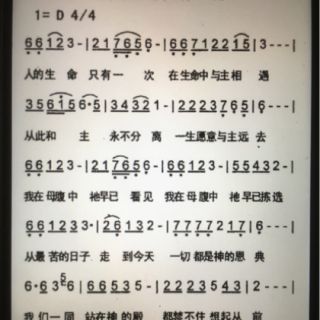 1= D 4/4
6 6 1 2 3 - | 2 1 7 6 5 6 - | 6 6 7 1 2 2 1 5 | 3 - - - |
人的生 命 只有一 次 在生命中与主相 遇
3 5 6 1 5 6 · 5 | 3 4 3 2 1 - | 2 2 2 3 7 6 5 | 6 - - - |
从此和 主 永不分 离 一生愿意与主远 去
6 6 1 2 3 - | 2 1 7 6 5 6 - | 6 6 1 2 3 - | 5 5 4 3 2 - |
我在母腹中 祂早已 看见 我在母腹中 祂早已拣选
6 6 1 2 3 3 · | 2 6 1 3 2 - | 7 7 7 7 2 1 7 | 6 - - - |
从最 苦的日子 走 到今天 一切都是神的恩 典
6 · 6 3 5 6 | 6 6 5 3 5 - | 2 2 2 3 2 1 2 | 3 - - - |
我们一同 站在神的殿 都禁不住想起从 前